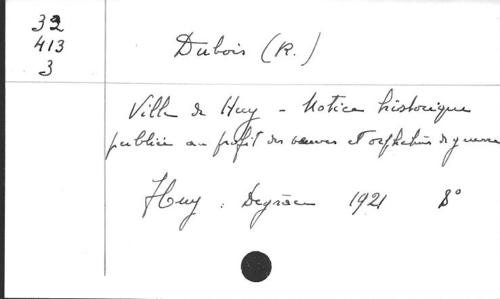 32
413
3
Dubois (R.)
Ville de Huy - Notice historique
publiée au profit des veuves et orphelins de guerre
Huy : Degrace 1921 8°